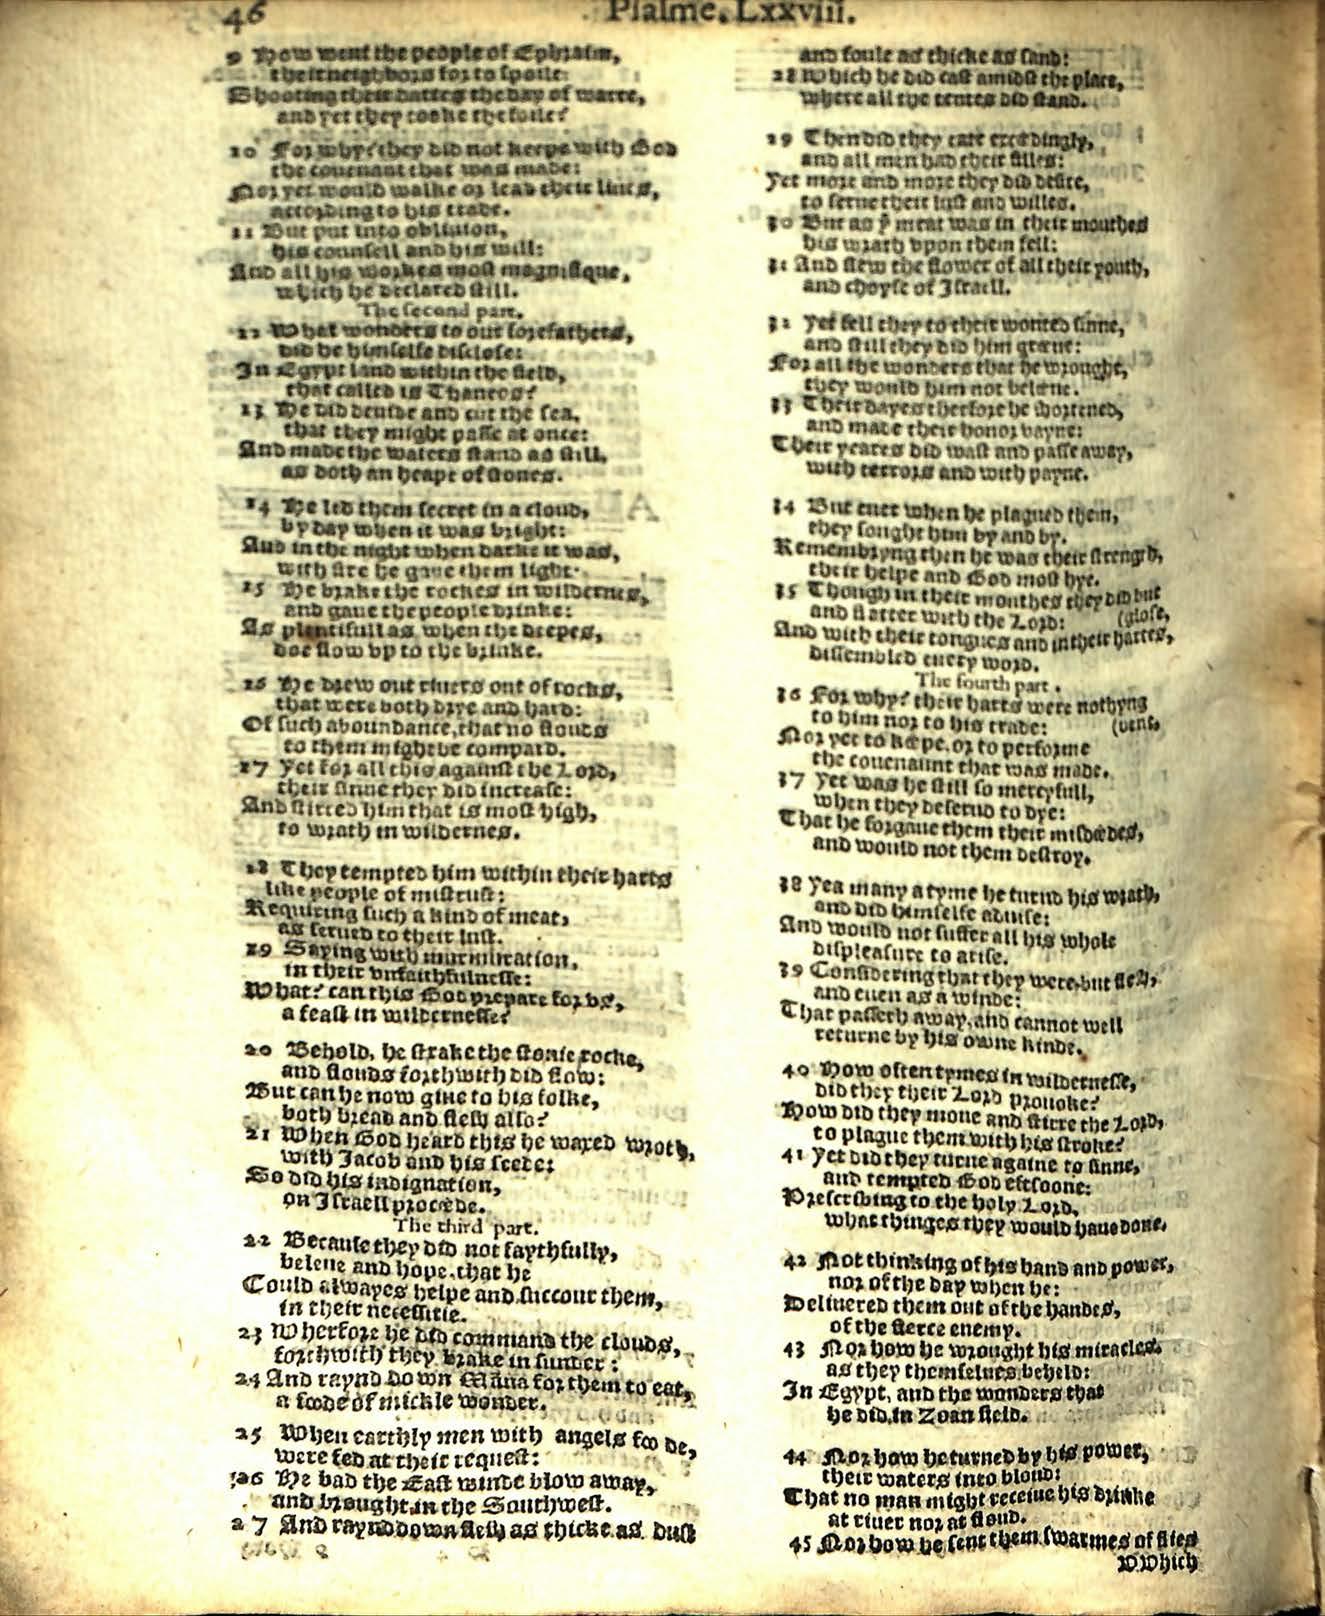 46
Psalme. Lxxviii.
9 How went the people of Ephraim,
their neighbors for to spoile:
Shooting their dartes the day of warre,
and yet they tooke the foile?
10 For why? they did not keepe with God
the couenant that was made:
Nor yet would walke or lead their liues,
according to his trade.
11 But put into obliuion,
his counsell and his will:
And all his workes most magnifique,
which he declared still.
The second part.
12 What wonders to our forefathers,
did he himselfe disclose:
In Egypt land within the field,
that called is Thaneos?
13 He did deuide and cut the sea,
that they might passe at once:
And made the waters stand as still,
as doth an heape of stones.
14 He led them secret in a cloud,
by day when it was bright:
And in the night when darke it was,
with fire he gaue them light.
15 He brake the rockes in wildernes,
and gaue the people drinke:
As plentifull as when the deepes,
doe flow vp to the brinke.
16 He drew out riuers out of rocks,
that were both drye and hard:
Of such aboundance, that no flouds
to them might be compard.
17 Yet for all this against the Lord,
their sinne they did increase:
And stirred him that is most high,
to wrath in wildernes.
18 They tempted him within their harts
like people of mistrust:
Requiring such a kind of meat,
as serued to their lust.
19 Saying with murmuration,
in their vnfaithfulnesse:
What? can this God prepare for vs,
a feast in wildernesse?
20 Behold, he strake the stonie rocke,
and flouds forthwith did flow:
But can he now giue to his folke,
both bread and flesh also?
21 When God heard this he waxed wroth,
with Jacob and his seede:
So did his indignation,
on Israell proceede.
The third part.
22 Because they did not faythfully,
beleue and hope, that he
Could alwayes helpe and succour them,
in their necessitie.
23 Wherfore he did command the clouds,
forthwith they brake in sunder:
24 And raynd down Mãna for them to eat,
a foode of mickle wonder.
25 When earthly men with angels foode,
were fed at their request:
26 He bad the East winde blow away,
and brought in the Southwest.
27 And raynd down flesh as thicke as dust
and foule as thicke as sand:
28 Which he did cast amidst the place,
where all the tentes did stand.
29 Then did they eate exceedingly,
and all men had their filles:
Yet more and more they did desire,
to serue their lust and willes.
30 But as ẙ meat was in their mouthes
his wrath vpon them fell:
31 And slew the flower of all their youth,
and choyse of Israell.
32 Yet fell they to their wonted sinne,
and still they did him greeue:
For all the wonders that he wrought,
they would him not beleeue.
33 Their dayes therfore he shortened,
and made their honor vayne:
Their yeares did wast and passe away,
with terrors and with payne.
34 But euer when he plagued them,
they sought him by and by.
Remembryng then he was their strength,
their helpe and God most hye.
35 Though in their mouthes they did but
and flatter with the Lord: (glose,
And with their tongues and in their hartes,
dissembled euery word.
The fourth part.
36 For why? their harts were nothyng
to him nor to his trade: (bent,
Nor yet to keepe, or to performe
the couenaunt that was made.
37 Yet was he still so mercyfull,
when they deserud to dye:
That he forgaue them their misdeedes,
and would not them destroy.
38 Yea many a tyme he turnd his wrath,
and did himselfe aduise:
And would not suffer all his whole
displeasure to arise.
39 Considering that they were but flesh,
and euen as a winde:
That passeth away, and cannot well
returne by his owne kinde.
40 How often tymes in wildernesse,
did they their Lord prouoke?
How did they moue and stirre the Lord,
to plague them with his stroke?
41 Yet did they turne againe to sinne,
and tempted God eftsoone:
Prescribing to the holy Lord,
what thinges they would haue done.
42 Not thinking of his hand and power,
nor of the day when he:
Deliuered them out of the handes,
of the fierce enemy.
43 Nor how he wrought his miracles,
as they themselues beheld:
In Egypt, and the wonders that
he did, in Zoan field.
44 Nor how he turned by his power,
their waters into bloud:
That no man might receiue his drinke
at riuer nor at floud.
45 Nor how he sent them swarmes of flies
Which